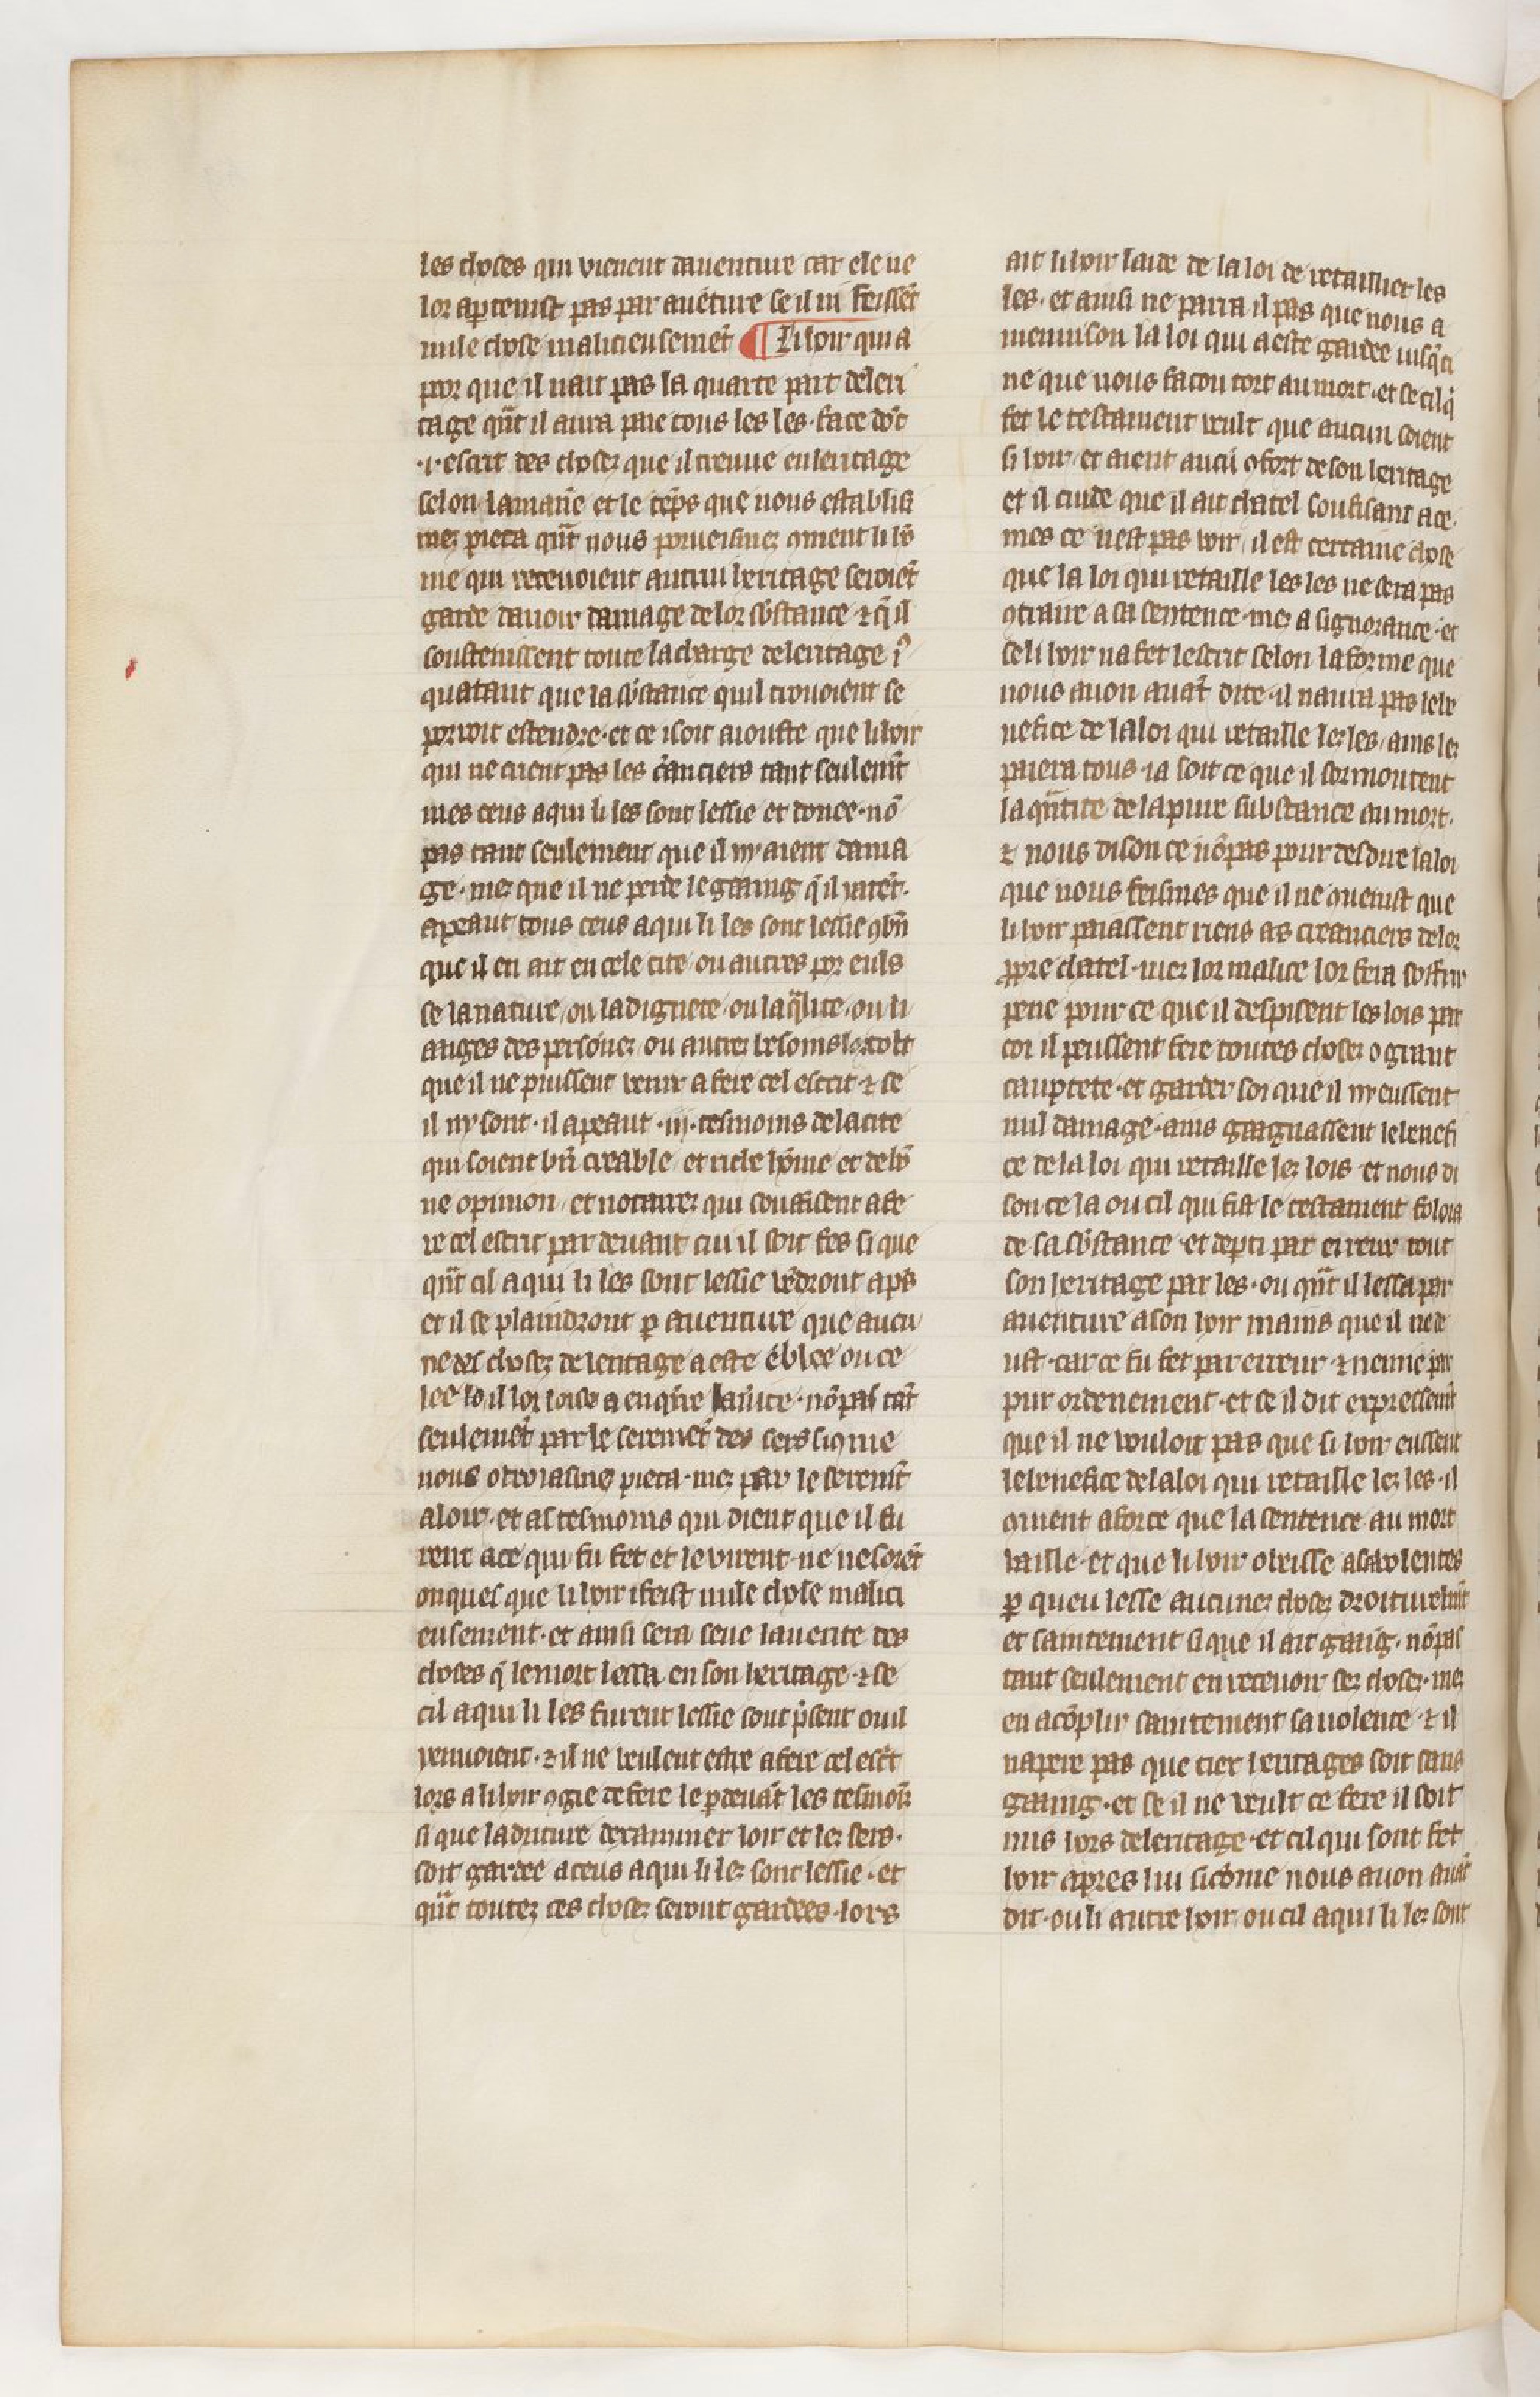 les choses qui vienent dauenture car ele ne
lor aptenist pas par auẽture se il ni feissẽt
nule chose malicieusemẽt ¶ Li hoir qui a
por que il nait pas la quarte part deleri
tage qñt il aura paie tous les les. face dõt
.i. escrit des chosez que il treuue en leritage
selon la maniẽ et le tẽps que nous establis
mez pieca qñt nous porueismez ꝯment li hõ
me qui receuoient autrui heritage seroiẽt
garde dauoir damage de lor sb̃stance ⁊ q̃ il
soustenissent toute la charge deleritage i
quatant que la sb̃stance quil trouoient se
porroit estendre. et ce i soit aiouste que li hoir
qui ne crient pas les c̃anciers tant seulem̃t
mes ceus a qui li les sont lessie et donce. nõ
pas tant seulement que il ny aient dama
ge. mez que il ne perde le gaaing q̃ il yatẽt.
apeaut tous ceus a qui li les sont lessie ꝯbñ
que il en ait en cele cite ou autres por euls
se la nature, ou la dignete, ou la q̃lite, ou li
aages des persõnez, ou autrez besoins lor tolt
que il ne puissent venir a fere cel escrit ⁊ se
il ny sont. il apeaut .iij. tesmoins de la cite
qui soient bñ creable, et riche hõme et de bõ
ne opinion, et notairez qui souffisent a fe
re cel escrit par deuant cui il soit fes si que
qñt cil a qui li les sont lessie vẽdront aps
et il se plaindront ꝑ auenture que aucu
ne des chosez de leritage a este ẽblee ou ce
lee quil lor loise a enq̃rre la ṽite. nõ pas tãt
seulemẽt par le seremẽt des sers si ꝯme
nous otroiasmez pieca. mez par le seremt̃
a loir. et as tesmoins qui dient que il fu
rent a ce qui fu fet et le virent. ne ne sorẽt
onques que li hoir i feist nule chose malici
eusement. et ainsi sera seue la uerite des
choses q̃ le mort lessa en son heritage. ⁊ se
cil a qui li les furent lessie sont p̃sent ou il
renuoient. ⁊ il ne veulent estre a fere cel esc̃t
lors a li hoir ꝯgie de fere le ꝑ deuãt les tesmoĩz
si que la driture dexaminer loir et lez sers.
soit gardee a ceus a qui li lez sont lessie. et
qñt toutez ces chosez seront gardees. lors
ait li hoir laide de la loi de retaillier les
les. et ainsi ne parra il pas que nous a
menuison la loi qui a este gardee iusq̃ci
ne que nous facon tort au mort. et se cil q̃
fet le testament veult que aucun soient
si hoir, et aient aucũ ꝯfort de son heritage
et il cuide que il ait chatel soufisant a ce.
mes ce nest pas voir, il est certaine chose
que la loi qui retaille les les ne sera pas
ꝯtraire a sa sentence. mez a signorance. et
se li hoir na fet lescrit selon la forme que
nous auon auãt dite. il naura pas le be
nefice de la loi qui retaille lez les, ains lez
paiera tous. ia soit ce que il sormontent
la qñtite de la pure substance au mort.
⁊ nous dison ce nõ pas pour desdire la loi
que nous feismes que il ne ꝯuenist que
li hoir paiassent riens as creanciers de lor
ꝓpre chatel. mez lor malice lor fera soffrir
pene pour ce que il despisent les lois par
coi il peussent fere toutes chosez o grant
cauptete. et garder soi que il ny eussent
nul damage. ains gaagnassent le benefi
ce de la loi qui retaille lez lois. et nous di
son ce la ou cil qui fist le testament foloia
de sa sb̃stance. et depti par erreur tout
son heritage par les. ou qñt il lessa par
auenture a son hoir mains que il ne de
ust. car ce fu fet par erreur. ⁊ nemie par
pur ordenement. et se il dit expressemt̃
que il ne vouloit pas que si hoir eussent
le benefice de la loi qui retaille lez les. il
ꝯuient a force que la sentence au mort
vaille. et que li hoir obeisse a sa volentes
ꝑ queu lesse aucunez chosez droiturelmt̃
et saintement si que il ait gaãig. nõ pas
tant seulement en receuoir sez chosez. mez
en acõplir saintement sa uolente. ⁊ il
napere pas que tiex heritages soit sans
gaaing. et se il ne veult ce fere il soit
mis hors deleritage. et cil qui sont fet
hoir apres lui si cõme nous auon auãt
dit. ou li autre hoir, ou cil a qui li lez sont